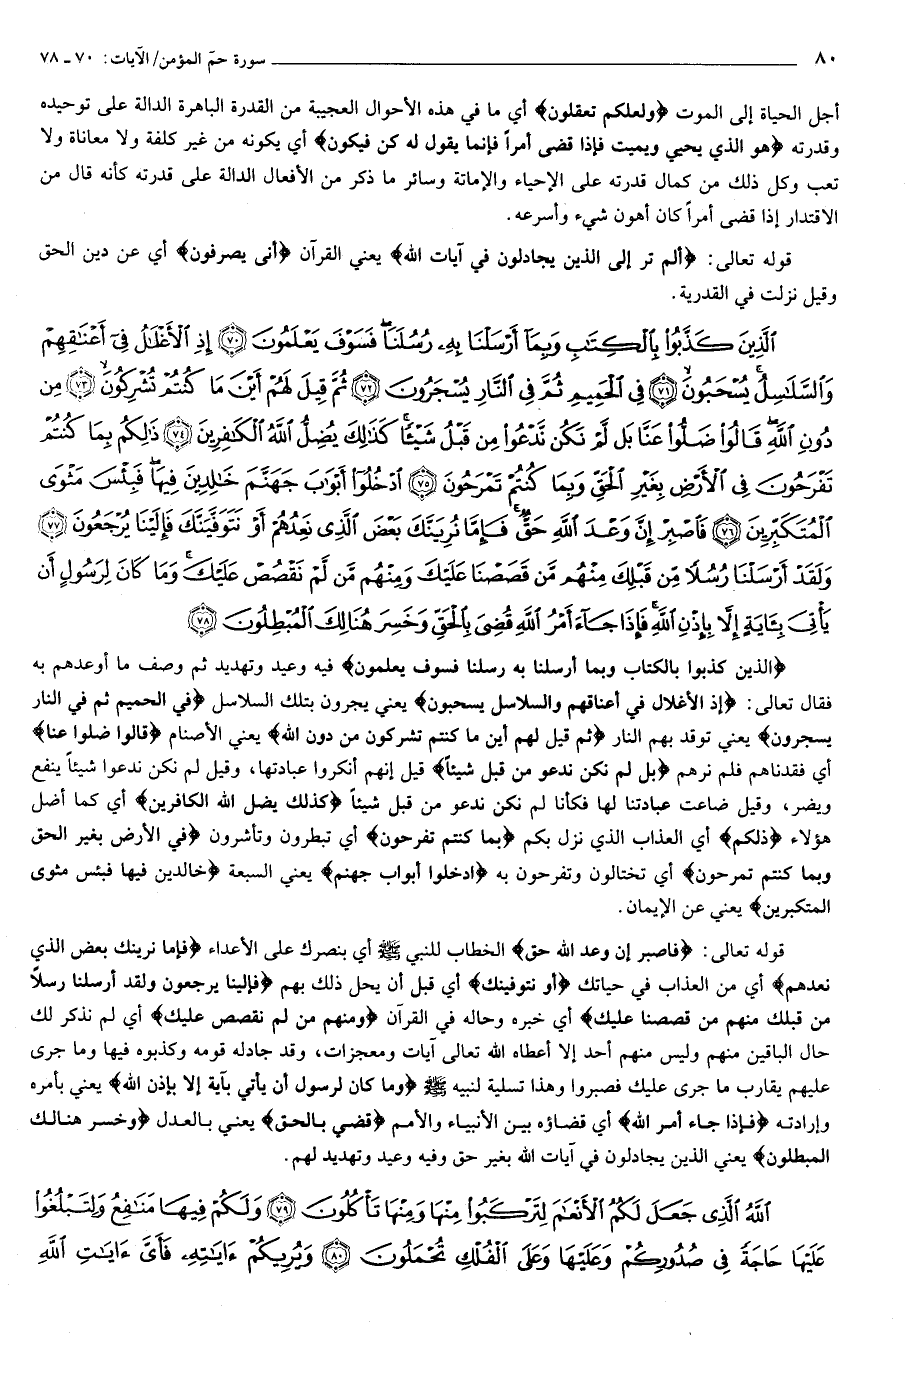 ٨٠ سورة حمۤ المؤمن/ الآيات: ٧٠ ـ ٧٨
أجل الحياة إلى الموت ﴿ولعلكم تعقلون﴾ أي ما في هذه الأحوال العجيبة من القدرة الباهرة الدالة على توحيده
وقدرته ﴿هو الذي يحيي ويميت فإذا قضى أمراً فإنما يقول له كن فيكون﴾ أي يكونه من غير كلفة ولا معاناة ولا
تعب وكل ذلك من كمال قدرته على الإحياء والإماتة وسائر ما ذكر من الأفعال الدالة على قدرته كأنه قال من
الاقتدار إذا قضى أمراً كان أهون شيء وأسرعه.
قوله تعالى: ﴿ألم تر إلى الذين يجادلون في آيات الله﴾ يعني القرآن ﴿أنى يصرفون﴾ أي عن دين الحق
وقيل نزلت في القدرية.
ٱلَّذِينَ كَذَّبُوا۟ بِٱلْكِتَٰبِ وَبِمَآ أَرْسَلْنَا بِهِۦ رُسُلَنَا ۖ فَسَوْفَ يَعْلَمُونَ ﴿٧٠﴾ إِذِ ٱلْأَغْلَٰلُ فِىٓ أَعْنَٰقِهِمْ
وَٱلسَّلَٰسِلُ يُسْحَبُونَ ﴿٧١﴾ فِى ٱلْحَمِيمِ ثُمَّ فِى ٱلنَّارِ يُسْجَرُونَ ﴿٧٢﴾ ثُمَّ قِيلَ لَهُمْ أَيْنَ مَا كُنتُمْ تُشْرِكُونَ ﴿٧٣﴾ مِن
دُونِ ٱللَّهِ ۖ قَالُوا۟ ضَلُّوا۟ عَنَّا بَل لَّمْ نَكُن نَّدْعُوا۟ مِن قَبْلُ شَيْـًٔا ۚ كَذَٰلِكَ يُضِلُّ ٱللَّهُ ٱلْكَٰفِرِينَ ﴿٧٤﴾ ذَٰلِكُم بِمَا كُنتُمْ
تَفْرَحُونَ فِى ٱلْأَرْضِ بِغَيْرِ ٱلْحَقِّ وَبِمَا كُنتُمْ تَمْرَحُونَ ﴿٧٥﴾ ٱدْخُلُوٓا۟ أَبْوَٰبَ جَهَنَّمَ خَٰلِدِينَ فِيهَا ۖ فَبِئْسَ مَثْوَى
ٱلْمُتَكَبِّرِينَ ﴿٧٦﴾ فَٱصْبِرْ إِنَّ وَعْدَ ٱللَّهِ حَقٌّ ۚ فَإِمَّا نُرِيَنَّكَ بَعْضَ ٱلَّذِى نَعِدُهُمْ أَوْ نَتَوَفَّيَنَّكَ فَإِلَيْنَا يُرْجَعُونَ ﴿٧٧﴾
وَلَقَدْ أَرْسَلْنَا رُسُلًا مِّن قَبْلِكَ مِنْهُم مَّن قَصَصْنَا عَلَيْكَ وَمِنْهُم مَّن لَّمْ نَقْصُصْ عَلَيْكَ ۗ وَمَا كَانَ لِرَسُولٍ أَن
يَأْتِىَ بِـَٔايَةٍ إِلَّا بِإِذْنِ ٱللَّهِ ۚ فَإِذَا جَآءَ أَمْرُ ٱللَّهِ قُضِىَ بِٱلْحَقِّ وَخَسِرَ هُنَالِكَ ٱلْمُبْطِلُونَ ﴿٧٨﴾
﴿الذين كذبوا بالكتاب وبما أرسلنا به رسلنا فسوف يعلمون﴾ فيه وعيد وتهديد ثم وصف ما أوعدهم به
فقال تعالى: ﴿إذ الأغلال في أعناقهم والسلاسل يسحبون﴾ يعني يجرون بتلك السلاسل ﴿في الحميم ثم في النار
يسجرون﴾ يعني توقد بهم النار ﴿ثم قيل لهم أين ما كنتم تشركون من دون الله﴾ يعني الأصنام ﴿قالوا ضلوا عنا﴾
أي فقدناهم فلم نرهم ﴿بل لم نكن ندعو من قبل شيئاً﴾ قيل إنهم أنكروا عبادتها، وقيل لم نكن ندعوا شيئاً ينفع
ويضر، وقيل ضاعت عبادتنا لها فكأنا لم نكن ندعو من قبل شيئاً ﴿كذلك يضل الله الكافرين﴾ أي كما أضل
هؤلاء ﴿ذلكم﴾ أي العذاب الذي نزل بكم ﴿بما كنتم تفرحون﴾ أي تبطرون وتأشرون ﴿في الأرض بغير الحق
وبما كنتم تمرحون﴾ أي تختالون وتفرحون به ﴿ادخلوا أبواب جهنم﴾ يعني السبعة ﴿خالدين فيها فبئس مثوى
المتكبرين﴾ يعني عن الإيمان.
قوله تعالى: ﴿فاصبر إن وعد الله حق﴾ الخطاب للنبي ﷺ أي بنصرك على الأعداء ﴿فإما نرينك بعض الذي
نعدهم﴾ أي من العذاب في حياتك ﴿أو نتوفينك﴾ أي قبل أن يحل ذلك بهم ﴿فإلينا يرجعون ولقد أرسلنا رسلاً
من قبلك منهم من قصصنا عليك﴾ أي خبره وحاله في القرآن ﴿ومنهم من لم نقصص عليك﴾ أي لم نذكر لك
حال الباقين منهم وليس منهم أحد إلا أعطاه الله تعالى آيات ومعجزات، وقد جادله قومه وكذبوه فيها وما جرى
عليهم يقارب ما جرى عليك فصبروا وهذا تسلية لنبيه ﷺ ﴿وما كان لرسول أن يأتي بآية إلا بإذن الله﴾ يعني بأمره
وإرادته ﴿فإذا جاء أمر الله﴾ أي قضاؤه بين الأنبياء والأمم ﴿قضي بالحق﴾ يعني بالعدل ﴿وخسر هنالك
المبطلون﴾ يعني الذين يجادلون في آيات الله بغير حق وفيه وعيد وتهديد لهم.
ٱللَّهُ ٱلَّذِى جَعَلَ لَكُمُ ٱلْأَنْعَٰمَ لِتَرْكَبُوا۟ مِنْهَا وَمِنْهَا تَأْكُلُونَ ﴿٧٩﴾ وَلَكُمْ فِيهَا مَنَٰفِعُ وَلِتَبْلُغُوا۟
عَلَيْهَا حَاجَةً فِى صُدُورِكُمْ وَعَلَيْهَا وَعَلَى ٱلْفُلْكِ تُحْمَلُونَ ﴿٨٠﴾ وَيُرِيكُمْ ءَايَٰتِهِۦ فَأَىَّ ءَايَٰتِ ٱللَّهِ